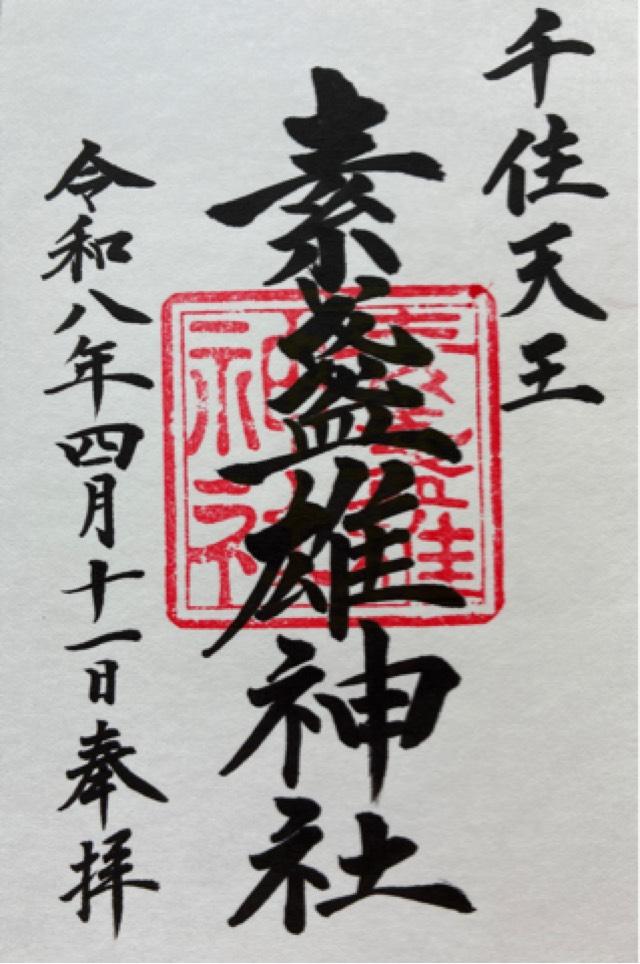 千住天王
素盞雄神社
令和八年四月十一日奉拝
素盞雄神社